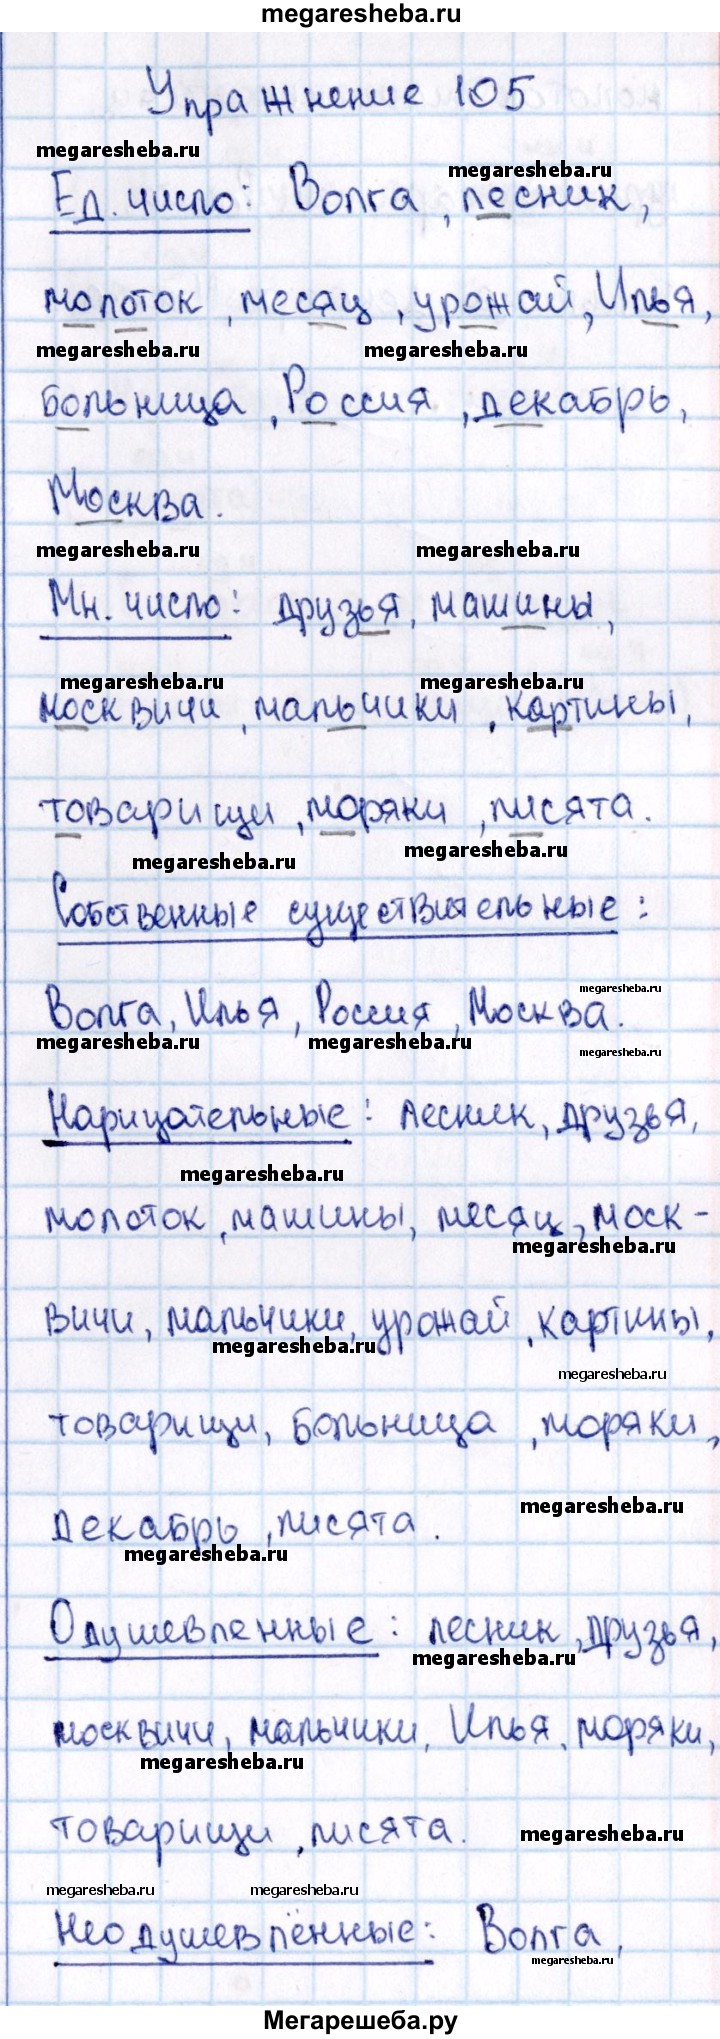 megaresheba.ru
Упражнение 105
megaresheba.ru
megaresheba.ru
Ед. число: Волга, лесник,
молоток, месяц, урожай, Илья,
megaresheba.ru megaresheba.ru
больница, Россия, декабрь,
Москва.
megaresheba.ru megaresheba.ru
Мн. число: друзья, машины,
megaresheba.ru megaresheba.ru
москвичи, мальчики, картины,
товарищи, моряки, лисята.
megaresheba.ru megaresheba.ru
Собственные существительные:
megaresheba.ru
Волга, Илья, Россия, Москва.
megaresheba.ru megaresheba.ru megaresheba.ru
Нарицательные: лесник, друзья,
megaresheba.ru
молоток, машины, месяц, моск-
megaresheba.ru
вичи, мальчики, урожай, картины,
megaresheba.ru
megaresheba.ru
товарищи, больница, моряки,
megaresheba.ru
декабрь, лисята.
megaresheba.ru
Одушевленные: лесник, друзья,
megaresheba.ru
москвичи, мальчики, Илья, моряки,
megaresheba.ru
товарищи, лисята.
megaresheba.ru
megaresheba.ru megaresheba.ru
Неодушевлённые: Волга,
megaresheba.ru
Мегарешеба.ру